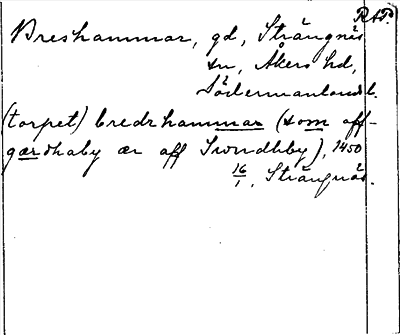 RAP.
Breshammar, gd, Strängnäs
sn, Åkers hd,
Södermanland.
(torpet) bredzhammar (som off-
gærdhaby ær aff Swndhby), 1450
16/1, Strängnäs.